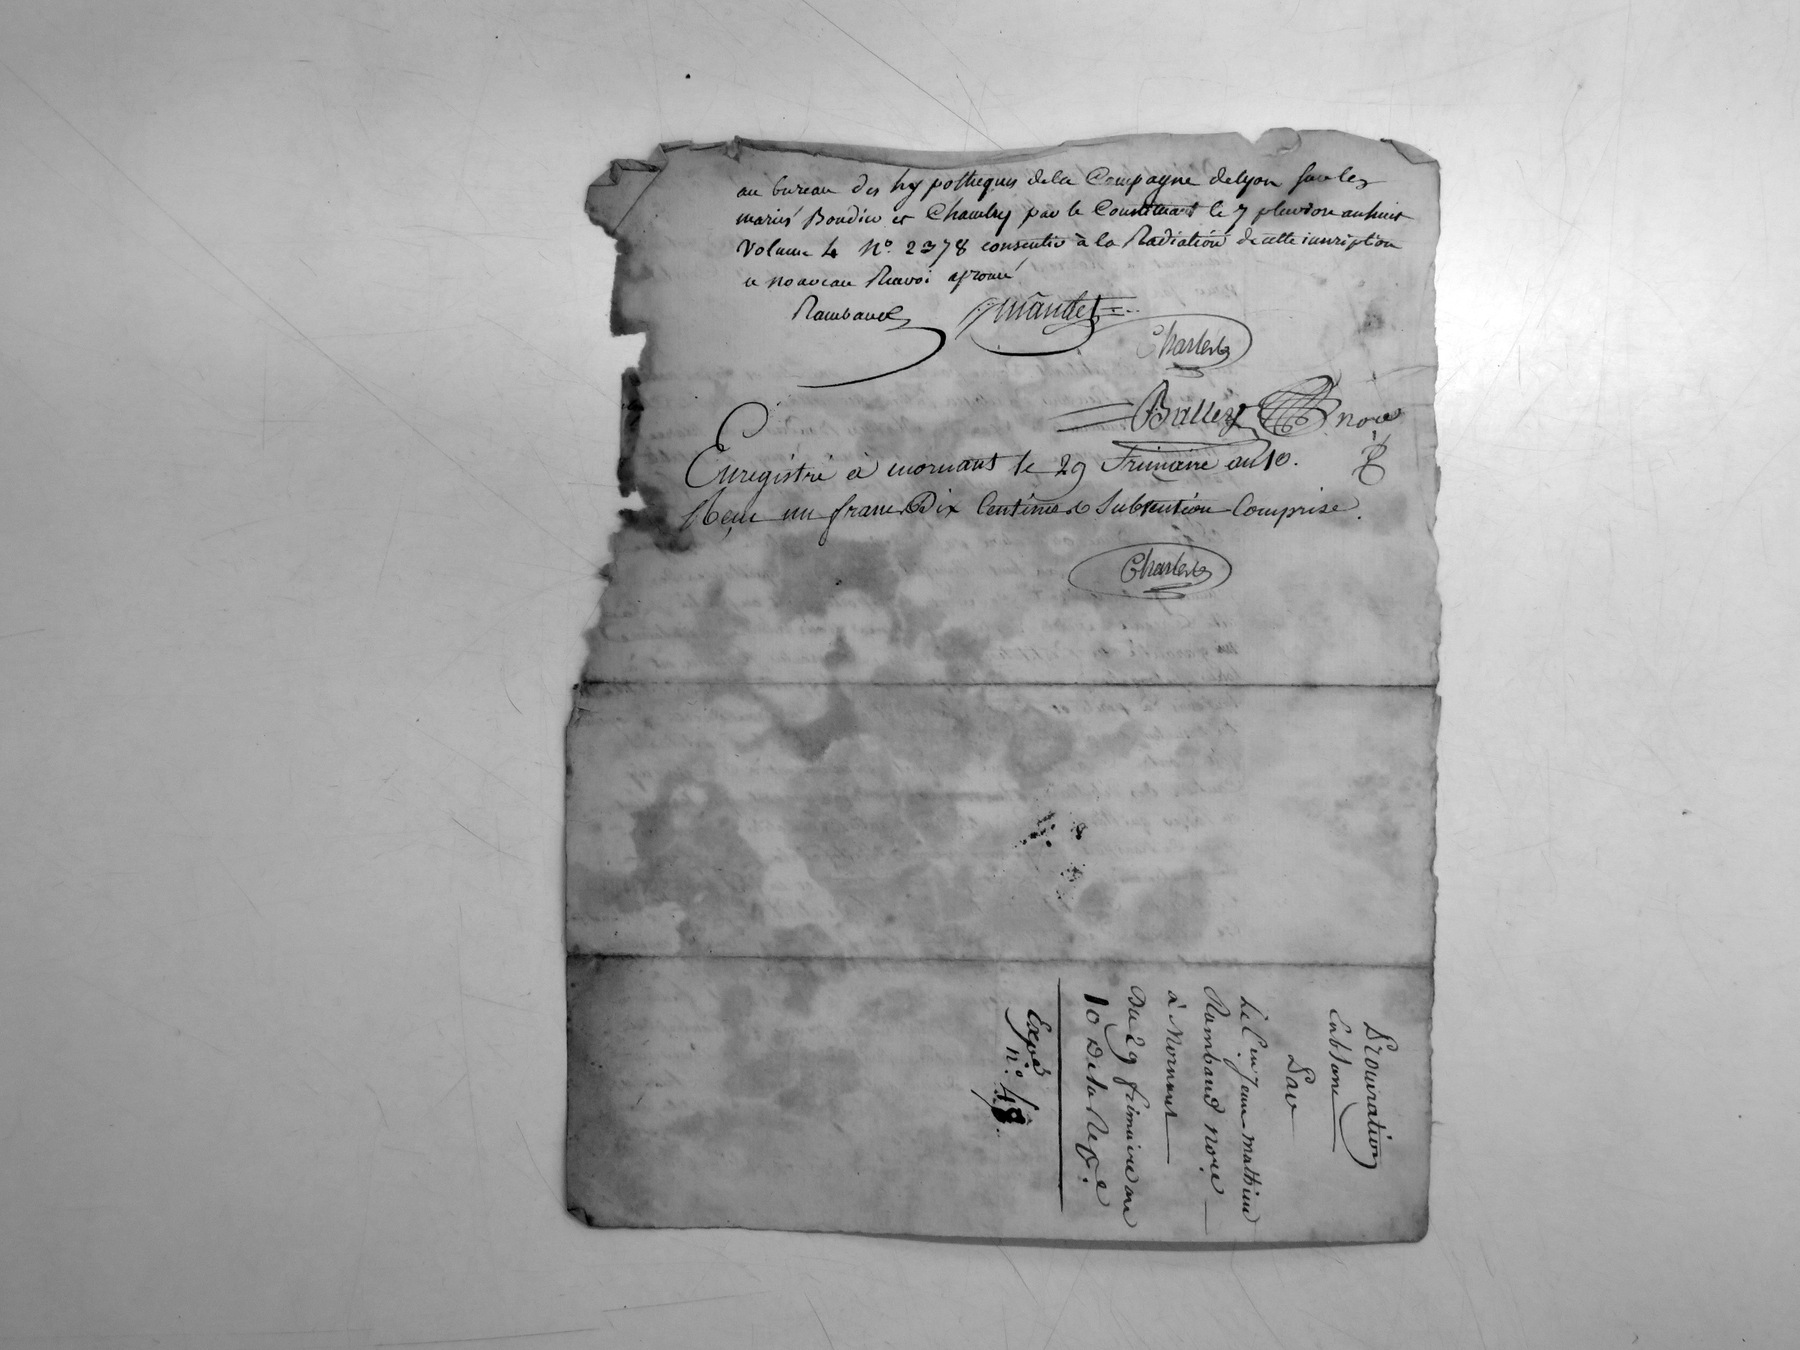 au bureau des hypotheques dela Campagne delyon sur les
mariés Boudin et Chambry par le Constituant le 7 pluviose an huit
Volume 4 N.o 2378 consentir à la Radiation de cette inscription
ce nouveau Renvoi aprouvé
Rambaud
Mandet
Charles
Balley nore
Enregistré à mornant le 29 Frimaire an 10.
Reçu un franc Dix Centimes Subvention Comprise.
Charles
Procuration
En blanc
Par
Le C.en Jean Mathieu
Rambaud Nore
à Mornant
Du 29 frimaire an
10 De la Rep.e
Exp.é
n.o 48.